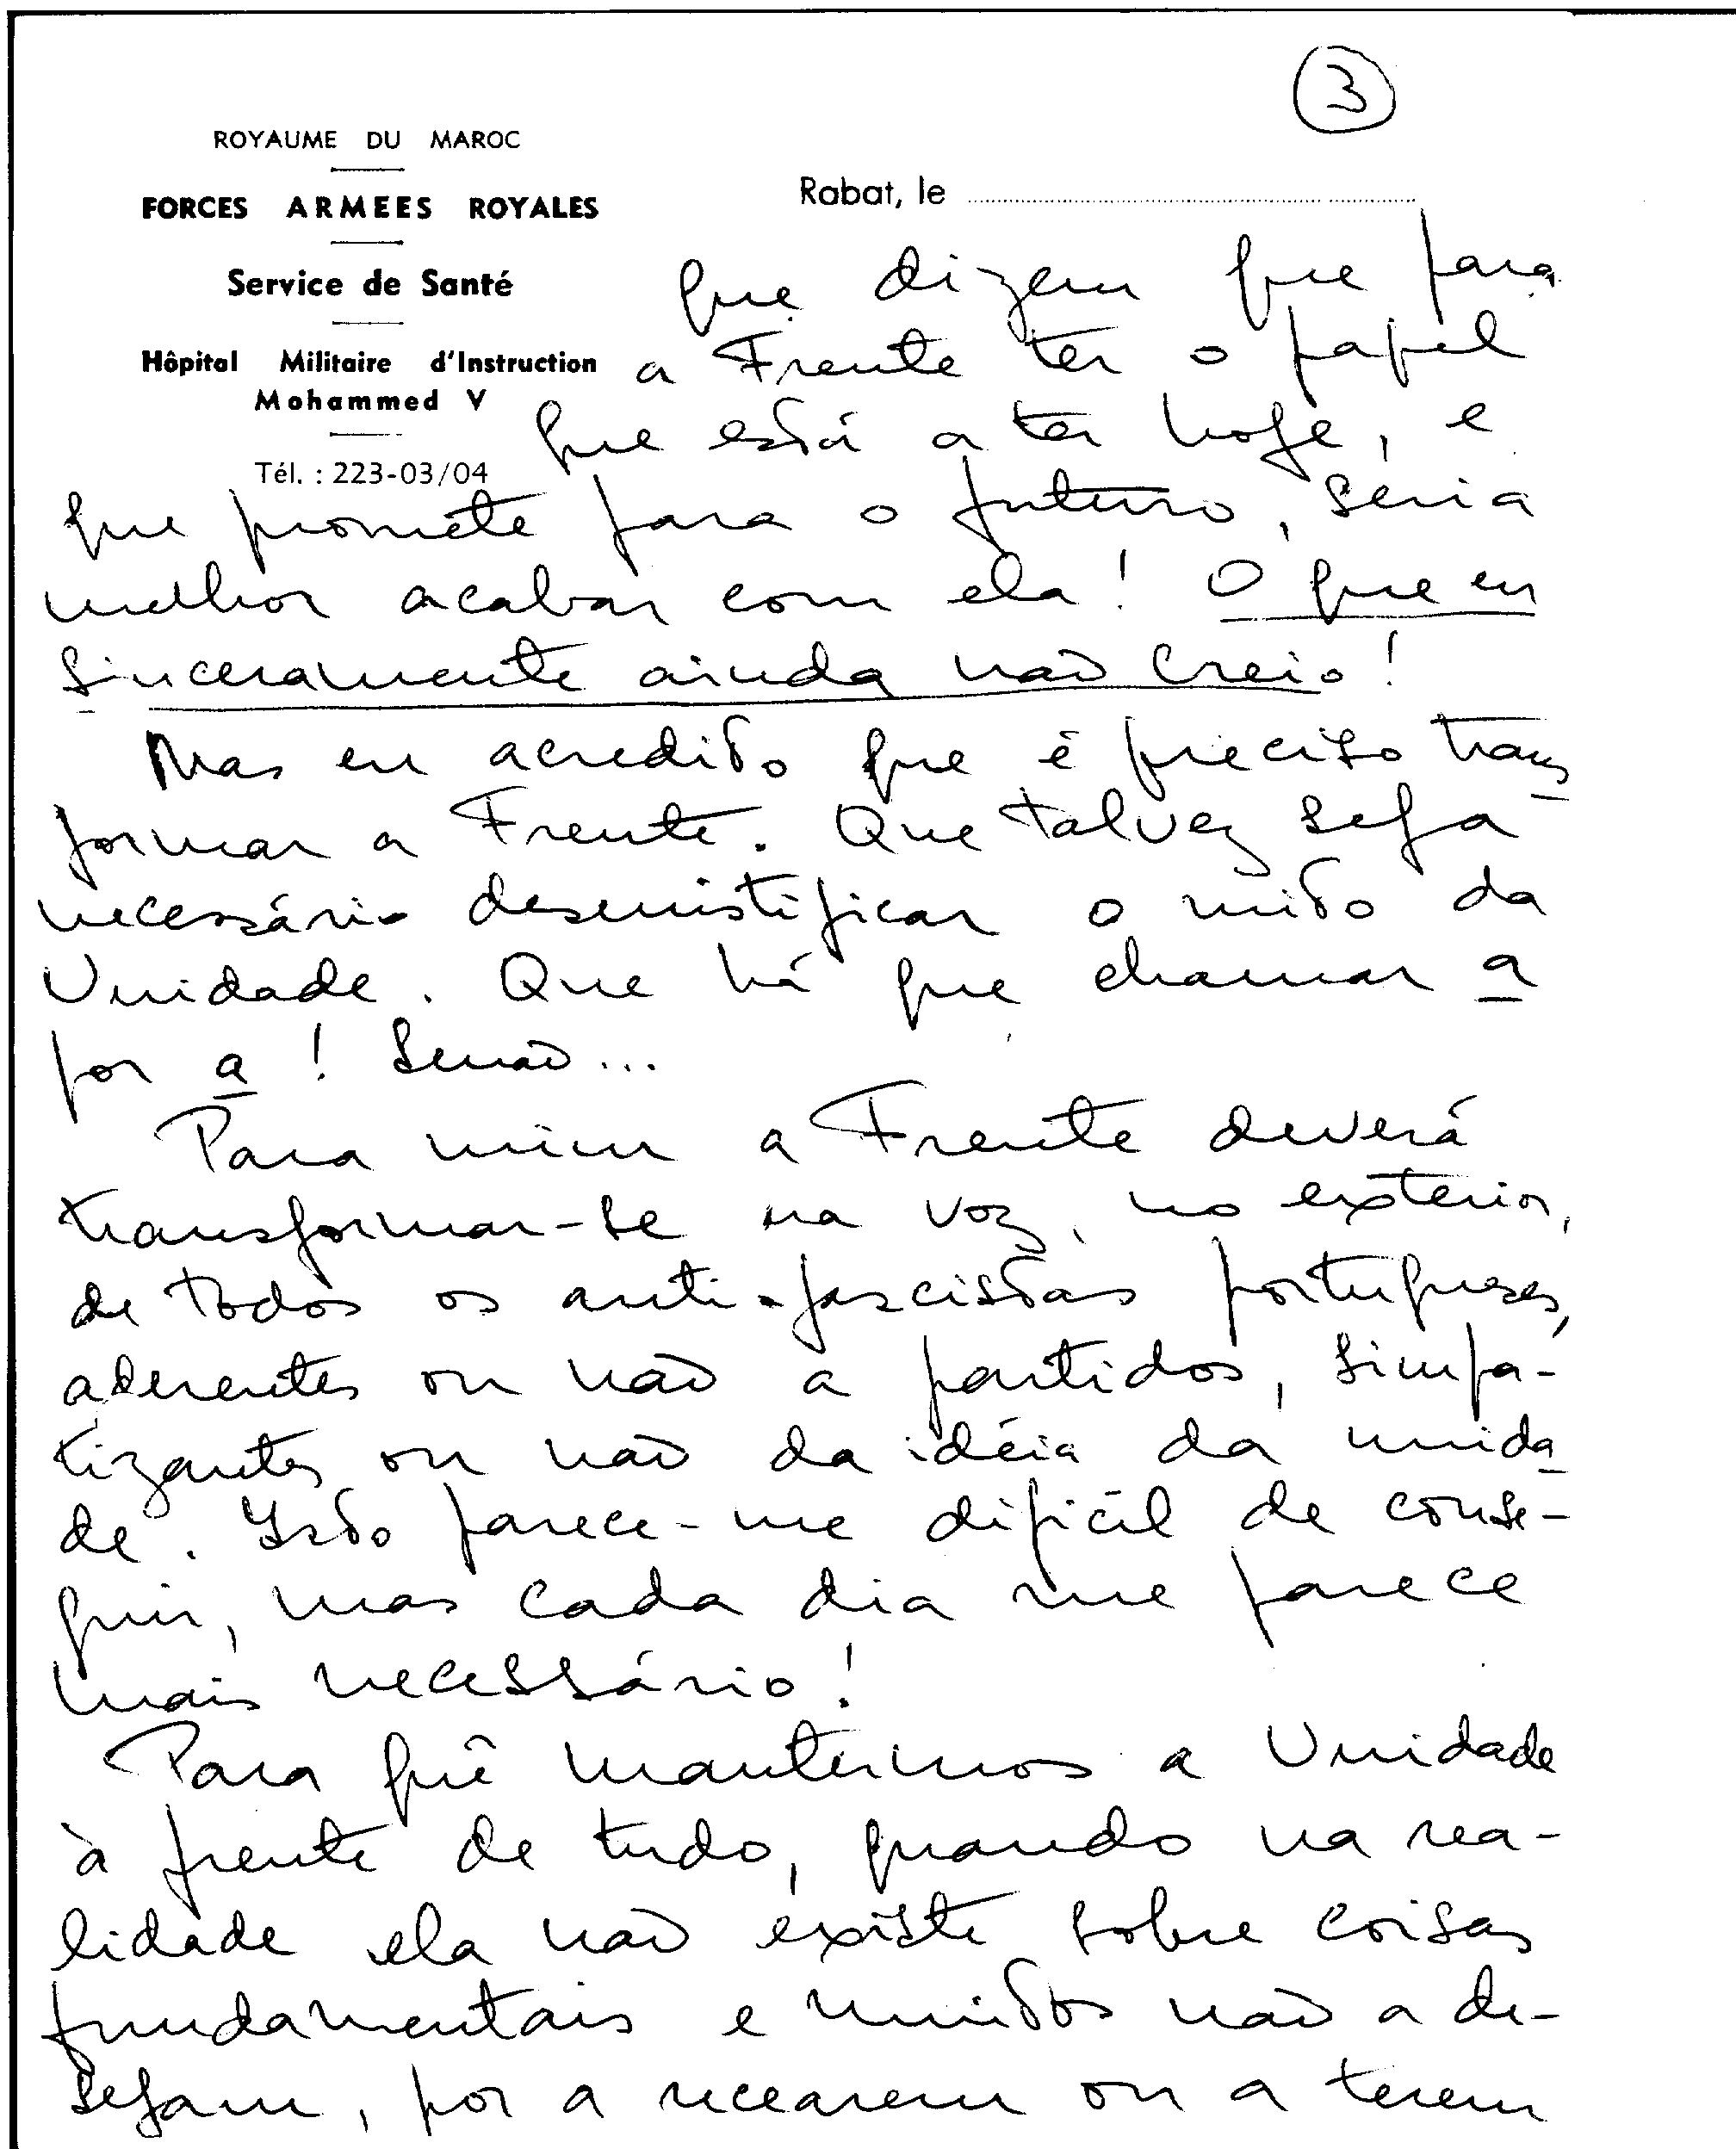 3
ROYAUME DU MAROC
FORCES ARMEES ROYALES
Service de Santé
Hôpital Militaire d'Instruction
Mohammed V
Tél. : 223-03/04
Rabat, le
que dizem que para
a Frente ter o papel
que está a ter hoje, e
que promete para o futuro, seria
melhor acabar com ela! O que eu
sinceramente ainda não creio!
Mas eu acredito que é preciso trans
formar a Frente. Que talvez seja
necessário desmistificar o mito da
Unidade. Que há que chamar a
por a! Senão...
Para mim a Frente deverá
transformar-se na voz, no exterior,
de todos os anti-fascistas portugueses,
aderentes ou não a partidos, simpa-
tizantes ou não da idéia da unida
de. Isto parece-me difícil de conse-
guir, mas cada dia me parece
mais necessário!
Para quê mantermos a Unidade
à frente de tudo, quando na rea-
lidade ela não existe sobre coisas
fundamentais e muitos não a de-
sejam, por a recearem ou a terem